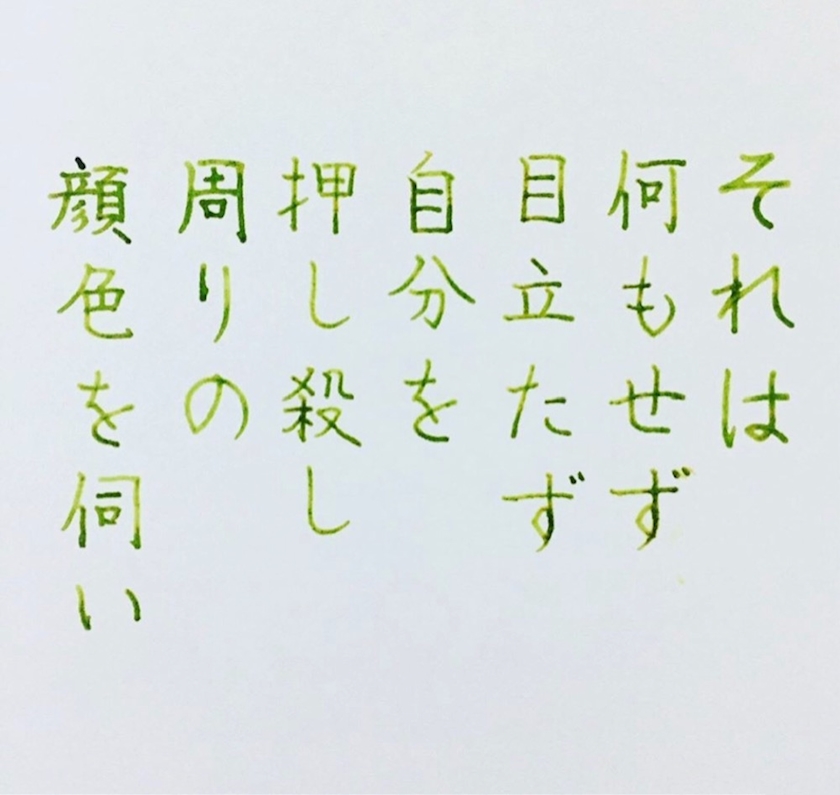 それは
何もせず
目立たず
自分を
押し殺し
周りの
顔色を伺い